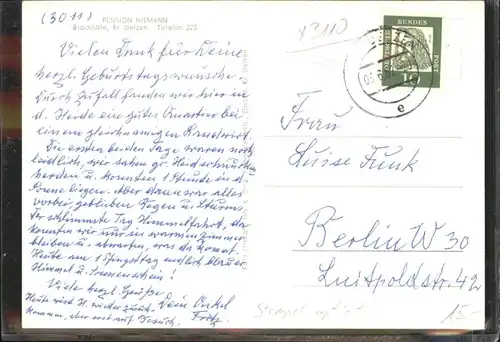 (3011)
PENSION NIEMANN
Brockhöfe, Kr. Uelzen Telefon 223
Vielen Dank für Deine
herzl. Geburtstagswünsche.
Durch Zufall fanden wir hier in
d. Heide ein gutes Quartier bei
einem gleichnamigen Landwirt.
Die ersten beiden Tage waren noch
leidlich, wir sahen gr. Heidschnucken-
herden u. konnten 1 Stunde in d.
Sonne liegen. Aber dann war alles
vorbei, geblieben Regen u. Sturm.
Der schlimmste Tag Himmelfahrt, da
konnten wir nur im warmen Zimmer
bleiben u. abwarten, was da kommt.
Heute am 1. Pfingsttag endlich blauer
Himmel u. Sonnenschein!
Viele herzl. Grüße
Dein Onkel
Fritz.
Heute wird H. wieder zurück
kommen, aber erst auf Besuch.
x3110
DEUTSCHE
BUNDES
POST
10
e
Frau
Luise Funk
Berlin W 30
Luitpoldstr. 42
Stempel
15.-